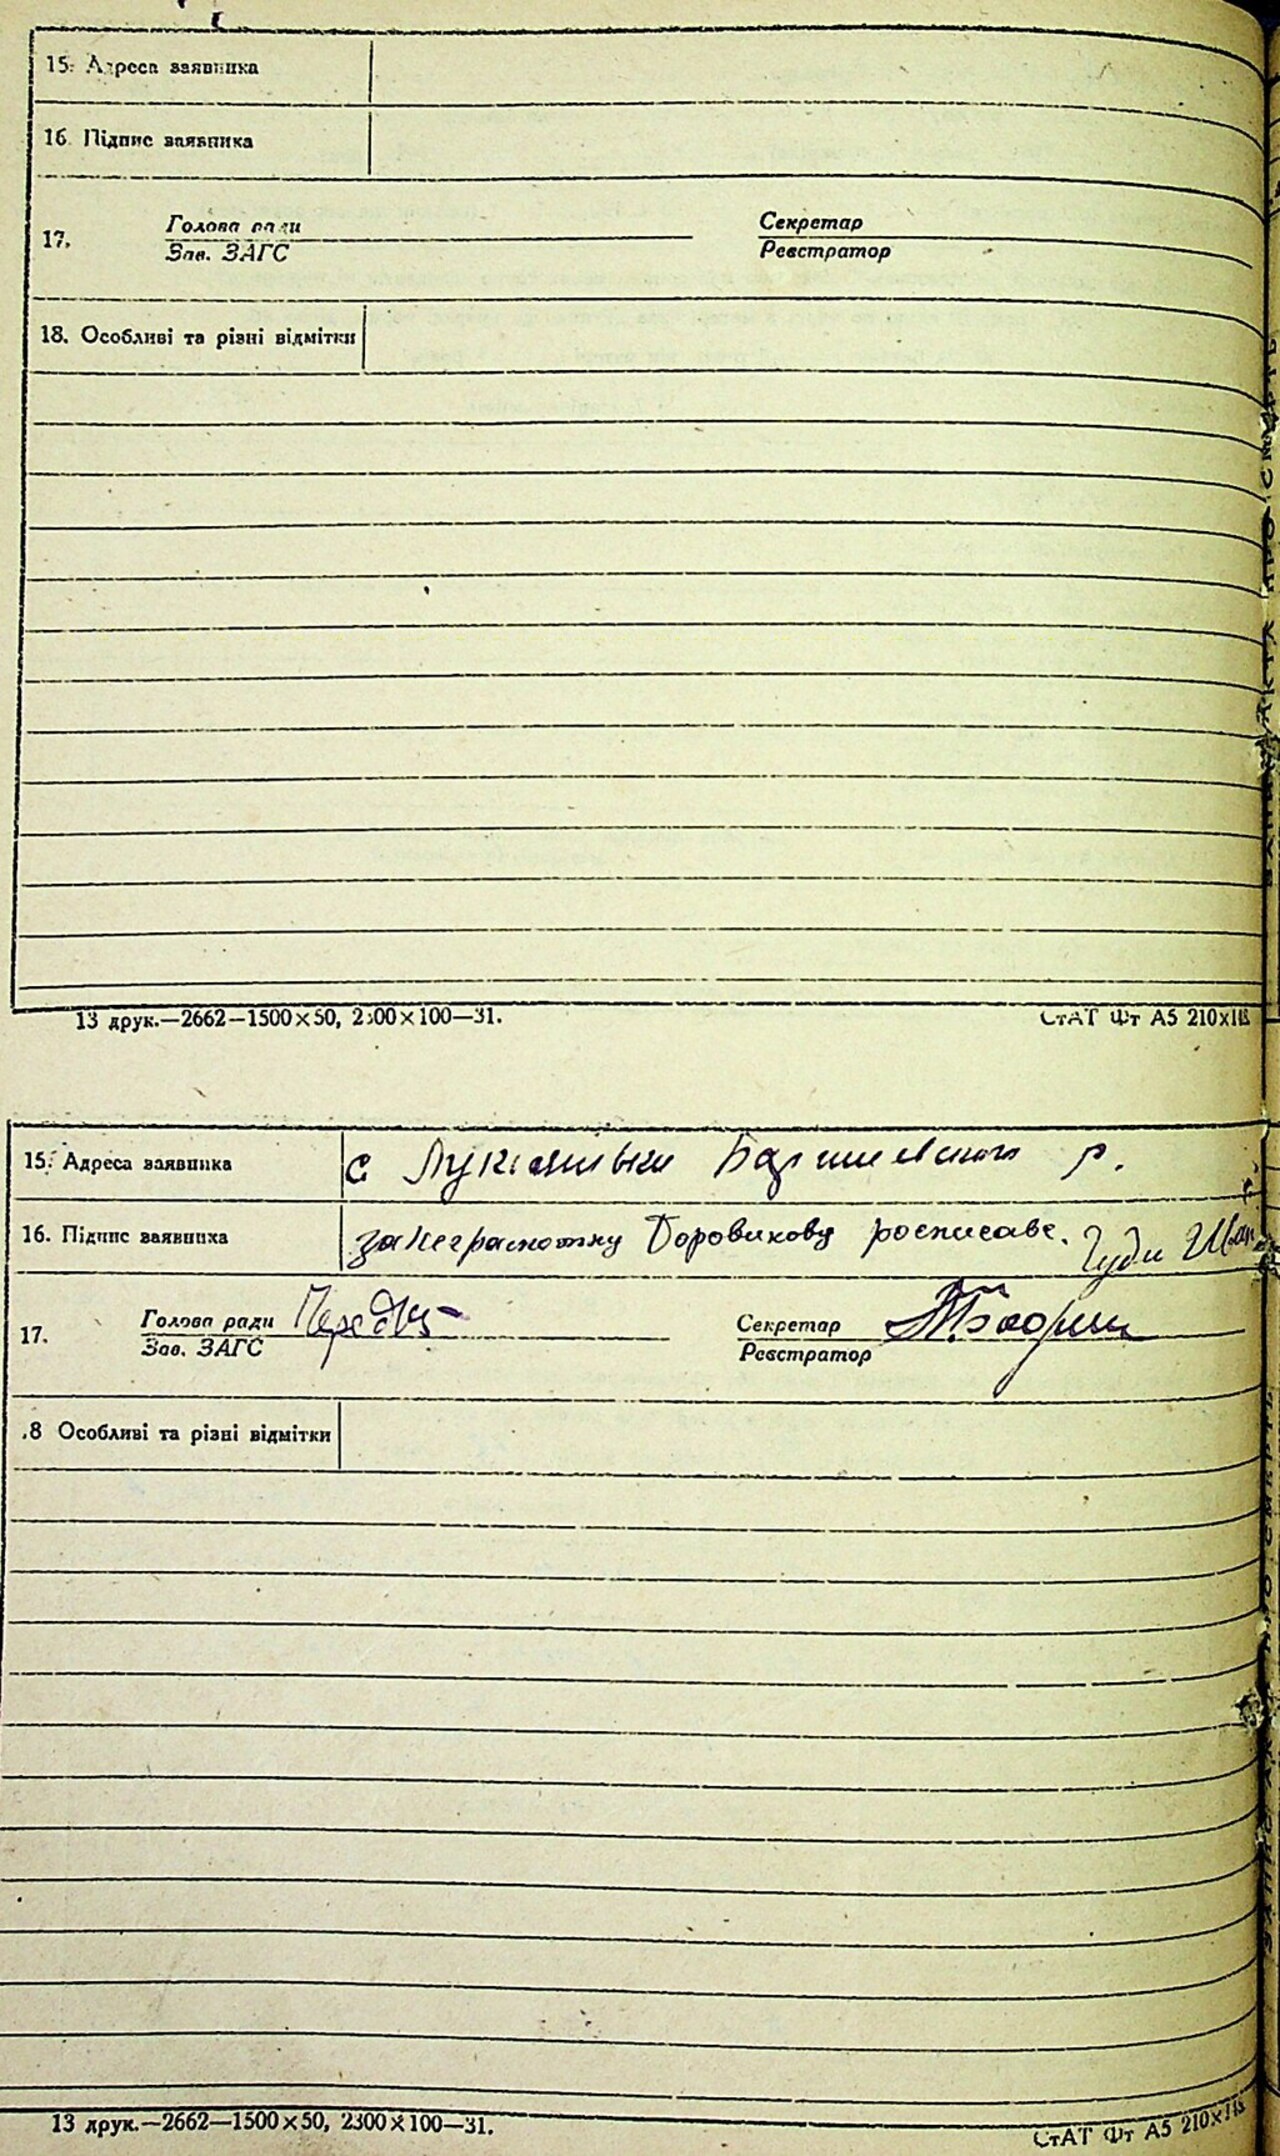 15. Адреса заявника
16. Підпис заявника
17. Голова ради Секретар
Зав. ЗАГС Реєстратор
18. Особливі та різні відмітки
13 друк.—2662—1500×50, 2300×100—31.
СтАТ Фт А5 210×
15. Адреса заявника с Лукашивки р.
16. Підпис заявника Боровикову росписавс.
17. Голова ради Секретар
Зав. ЗАГС Реєстратор
8 Особливі та різні відмітки
13 друк.—2662—1500×50, 2300×100—31.
СтАТ Фт А5 210×